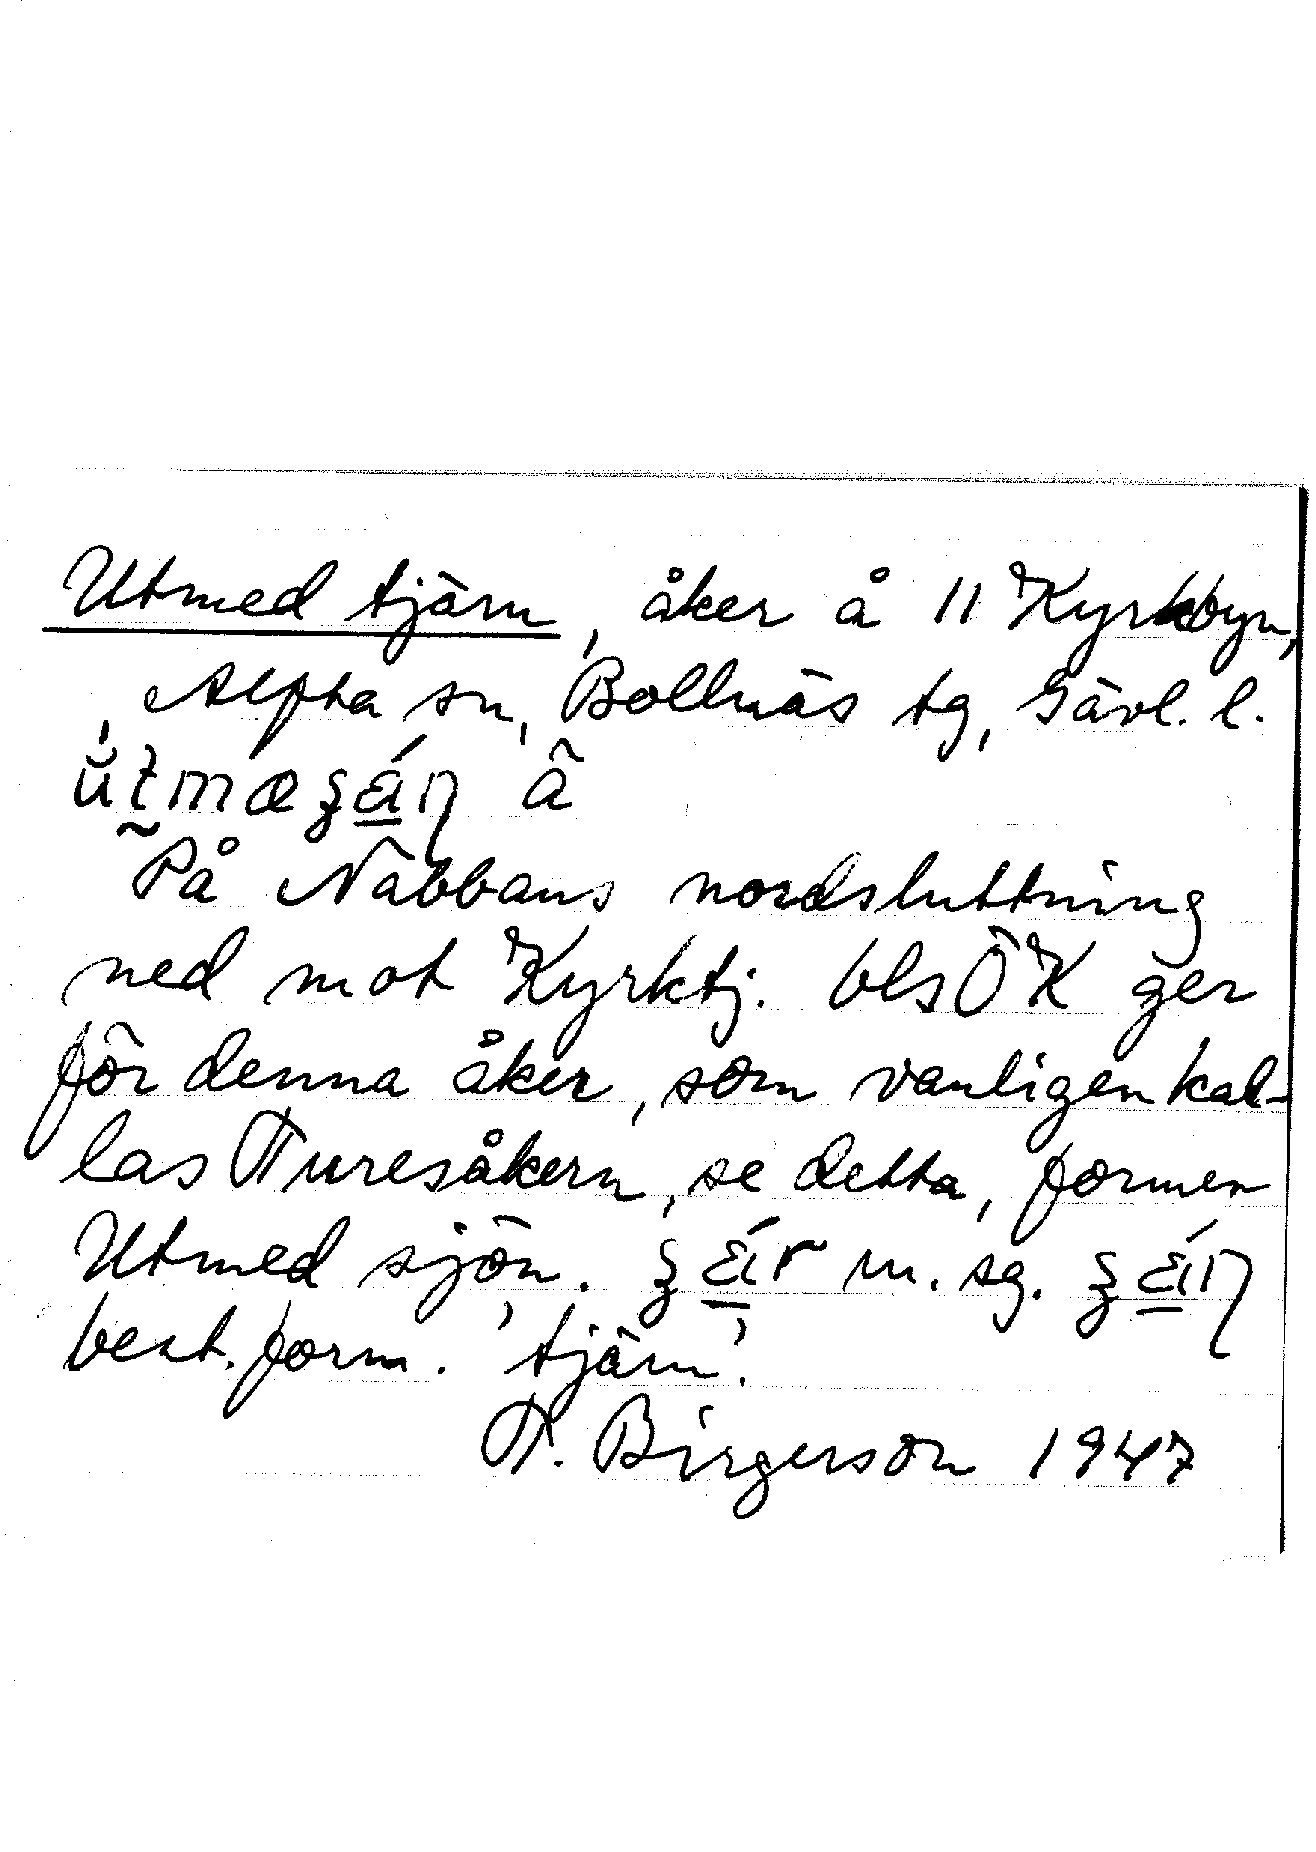 Utmed tjärn, åker å 11 Kyrkbyn,
Alfta sn, Bollnäs tg, Gävl. l.
På Nabbans nordsluttning
ned mot Kyrktj. blsÖK ger
för denna åker, som vanligen kal-
las Turesåkern, se detta, formen
Utmed sjön. m. sg.
best. form. 'tjärn'.
T. Birgerson 1947